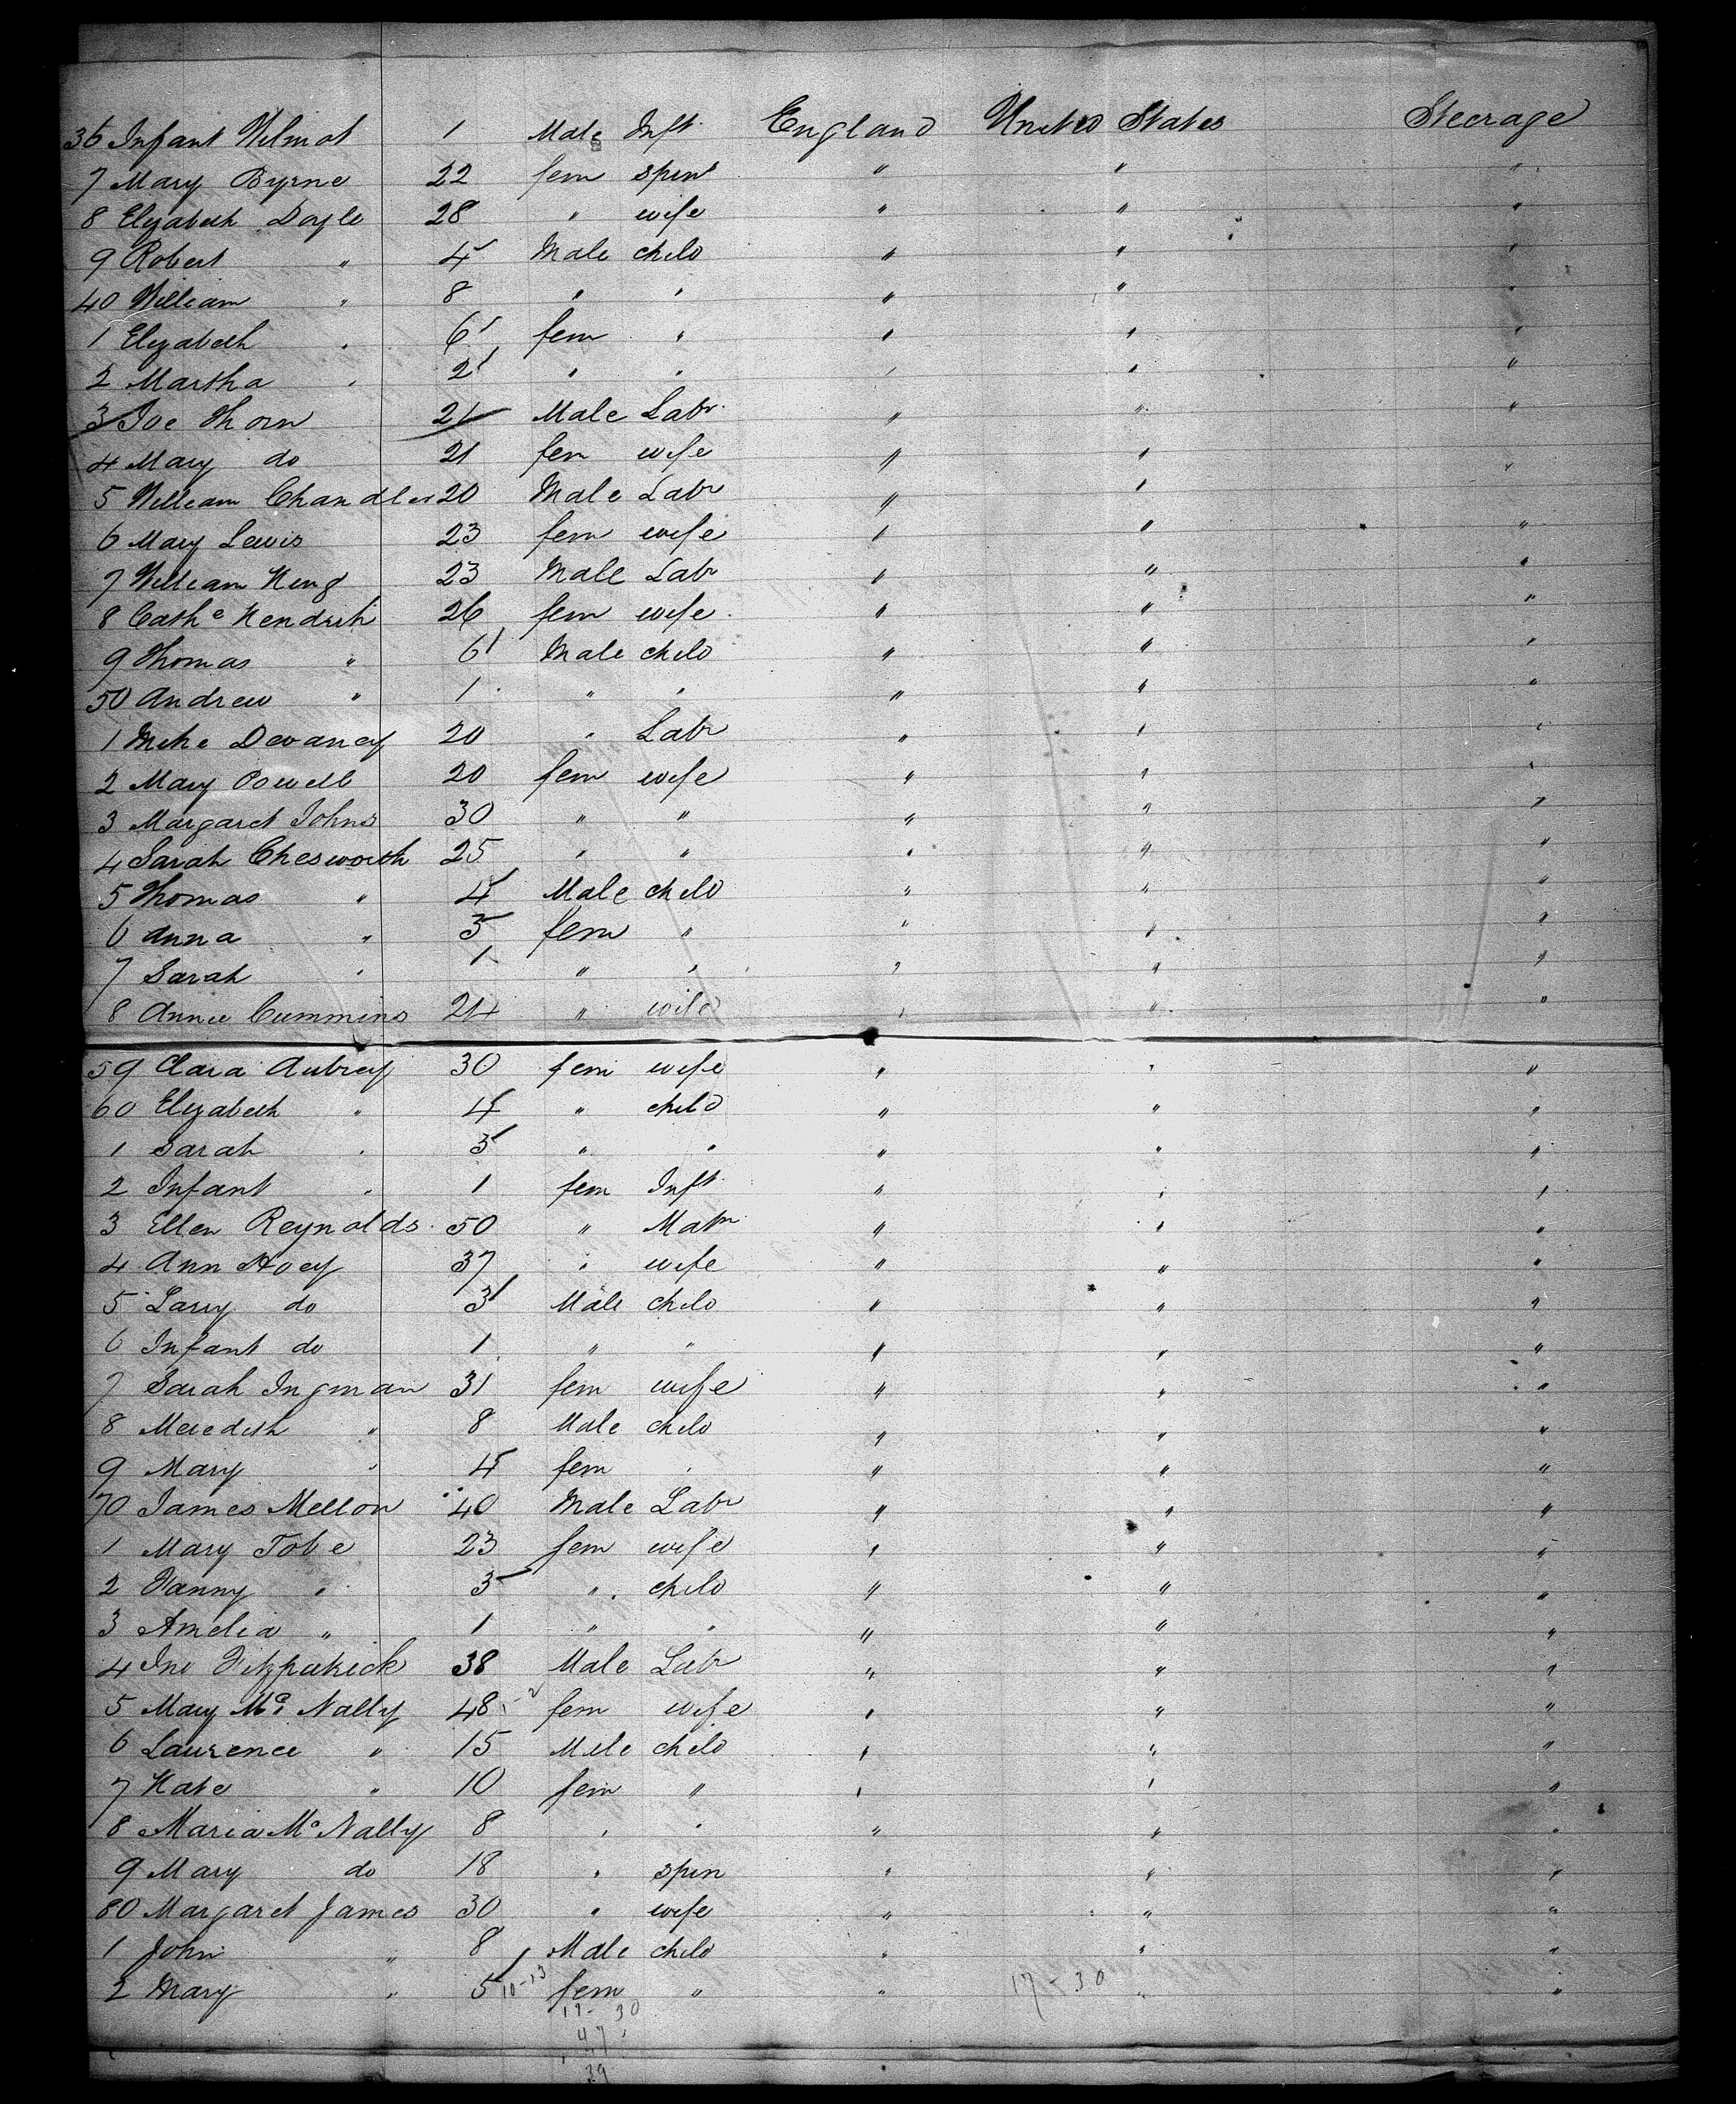 36 Infant Wilmot 1 Male Inft. England United States Steerage
7 Mary Byrne 22 fem spins " " "
8 Elizabeth Doyle 28 " wife " " "
9 Robert " 4 Male child " " "
40 William " 8 " " " " "
1 Elizabeth " 6 fem " " " "
2 Martha " 2 " " " " "
3 Joe Thorn 21 Male Labr. " " "
4 Mary do 21 fem wife " " "
5 William Chandler 20 Male Labr " " "
6 Mary Lewis 23 fem wife " " "
7 William King 23 Male Labr " " "
8 Cathe Kendrik 26 fem wife " " "
9 Thomas " 6 Male child " " "
50 Andrew " 1 " " " " "
1 Mike Devaney 20 " Labr " " "
2 Mary Powell 20 fem wife " " "
3 Margaret Johns 30 " " " " "
4 Sarah Chesworth 25 " " " " "
5 Thomas " 4 Male child " " "
6 Anna " 3 fem " " " "
7 Sarah " 1 " " " " "
8 Annie Cummins 24 " wife " " "
59 Clara Aubrey 30 fem wife " " "
60 Elizabeth " 4 " child " " "
1 Sarah " 3 " " " " "
2 Infant " 1 fem Inft. " " "
3 Ellen Reynolds 50 " Matn " " "
4 Ann Hoey 37 " wife " " "
5 Larry do 3 Male child " " "
6 Infant do 1 " " " " "
7 Sarah Ingman 31 fem wife " " "
8 Meredith " 8 Male child " " "
9 Mary " 4 fem " " " "
70 James Mellon 40 Male Labr " " "
1 Mary Tobe 23 fem wife " " "
2 Fanny " 3 " child " " "
3 Amelia " 1 " " " " "
4 Jno Fitzpatrick 38 Male Labr " " "
5 Mary Mc Nally 48 fem wife " " "
6 Laurence " 15 Male child " " "
7 Kate " 10 fem " " " "
8 Maria Mc Nally 8 " " " " "
9 Mary do 18 " spin " " "
80 Margaret James 30 " wife " " "
1 John " 8 Male child " " "
2 Mary " 5 10-13 fem " " 17-30 " "
17-30
47
39